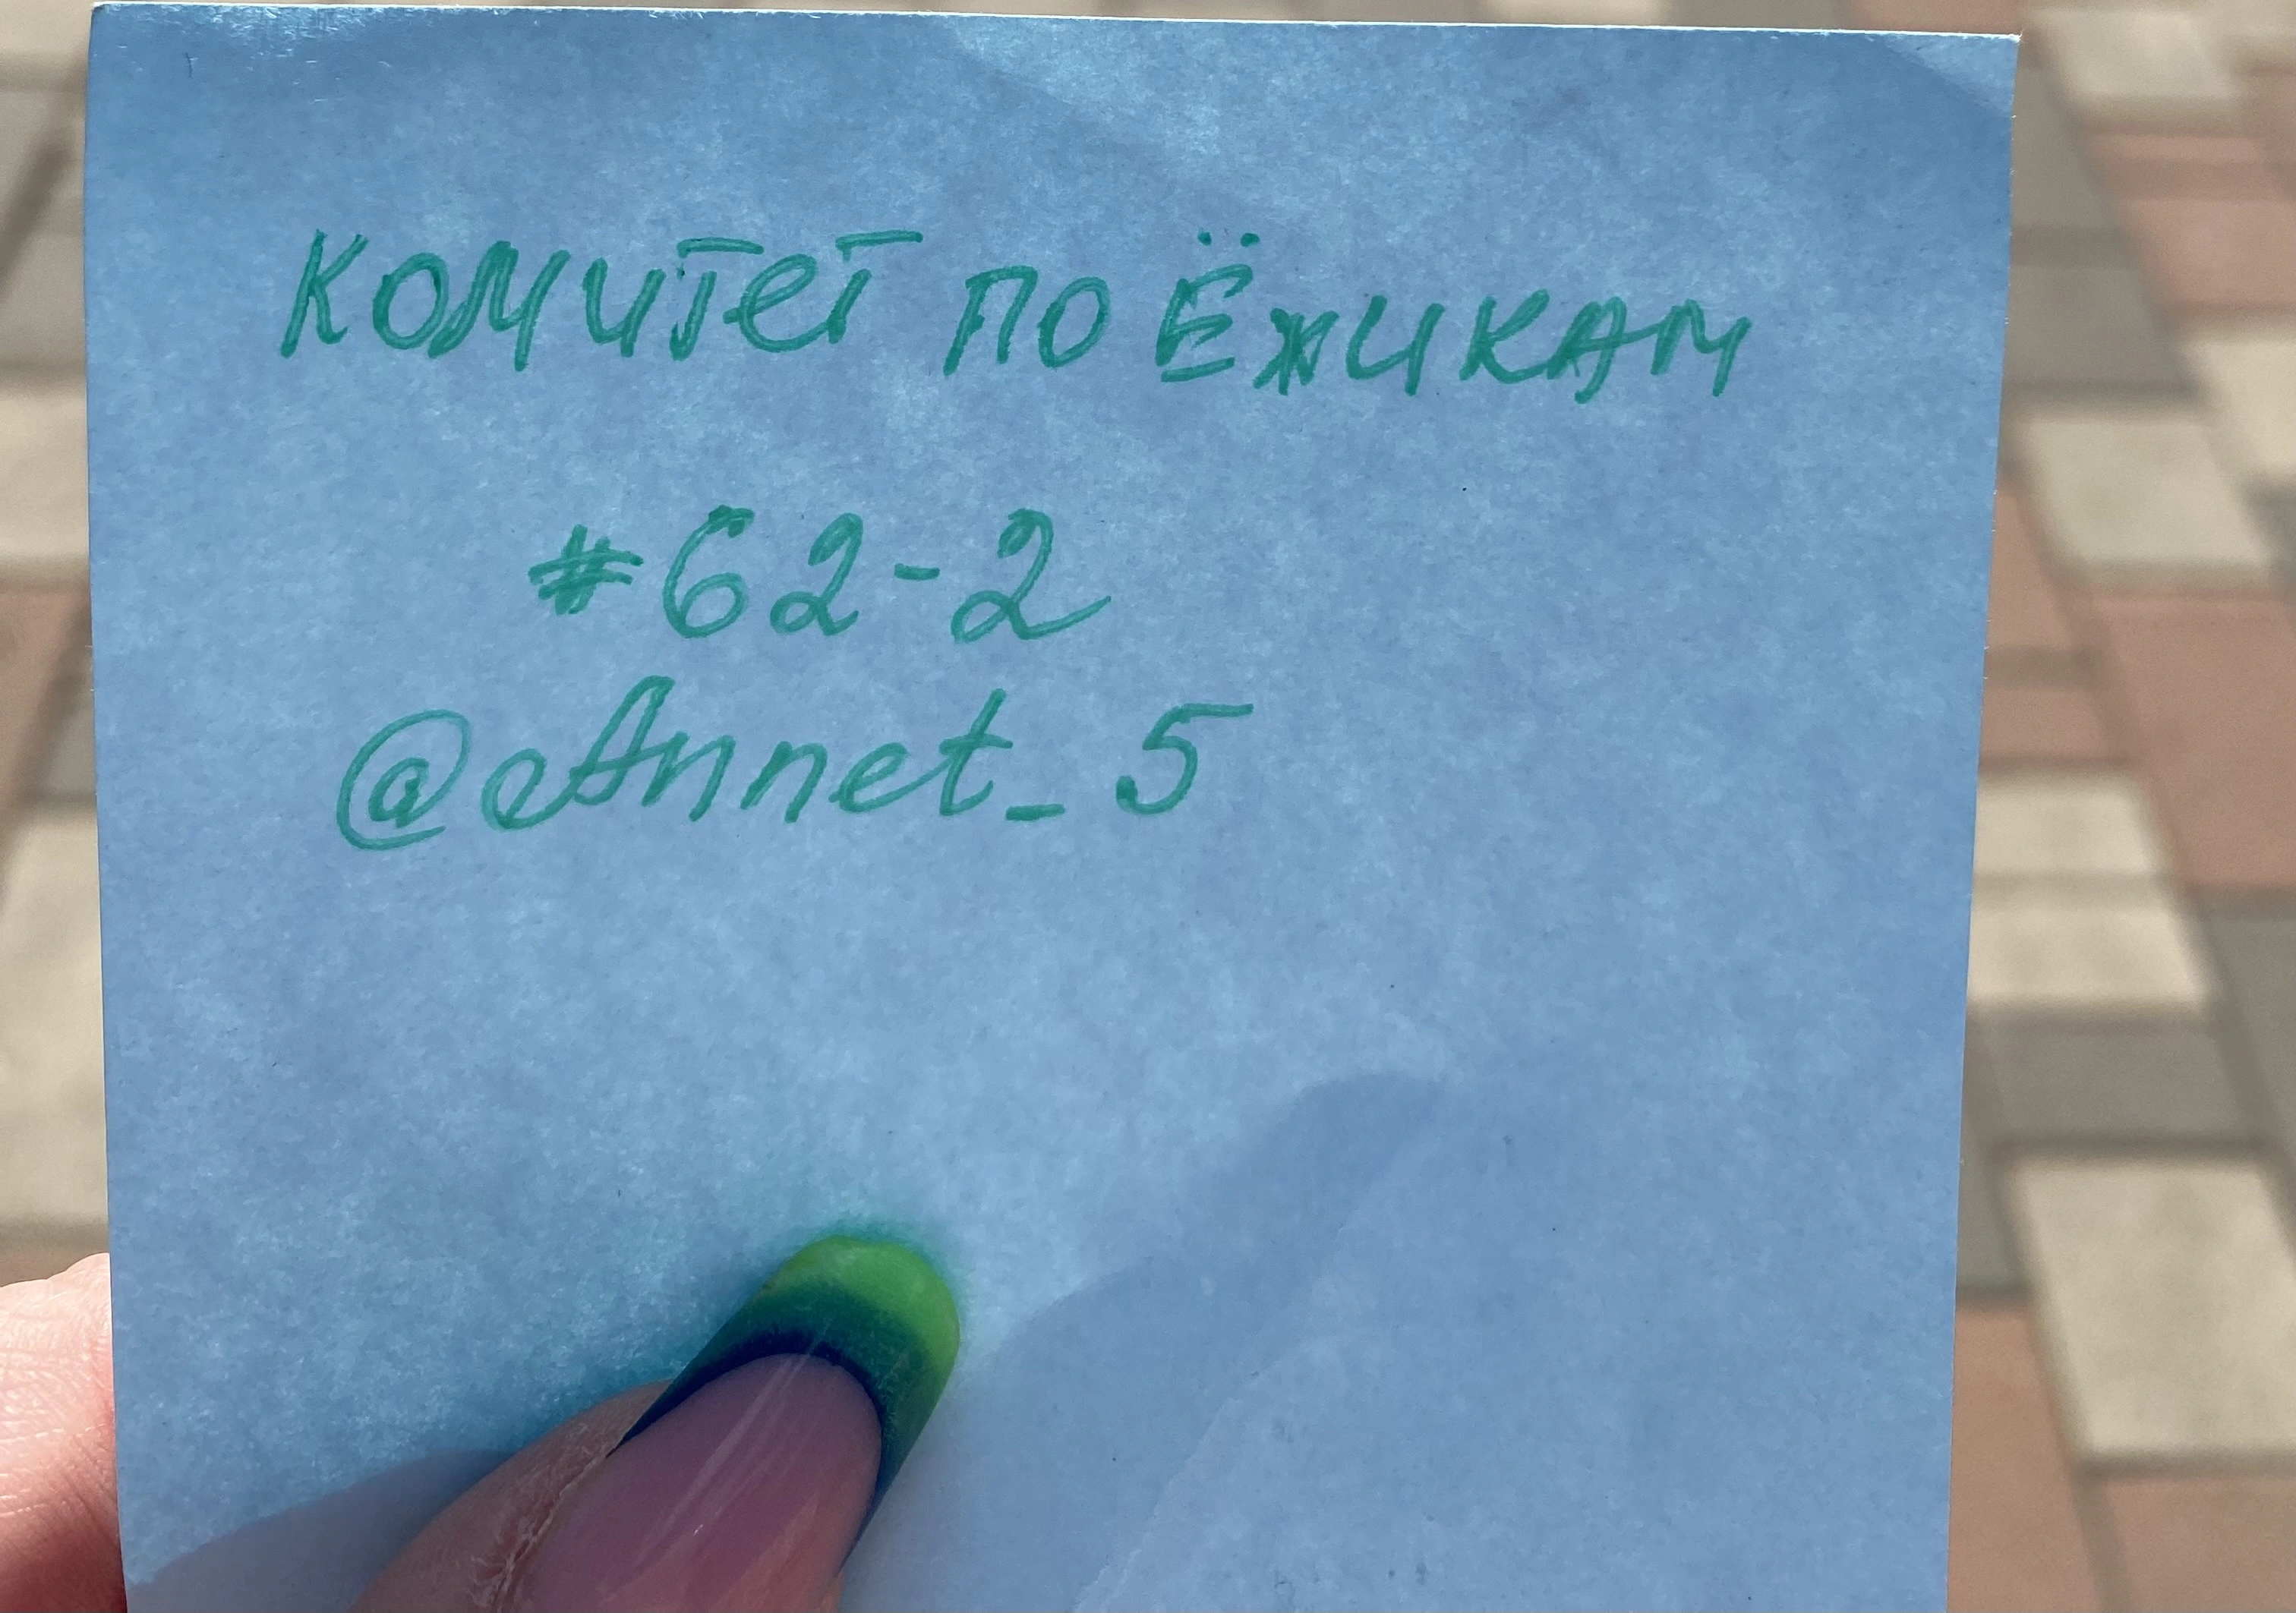 Комитет по Ёжикам
#62-2
@Annet_5